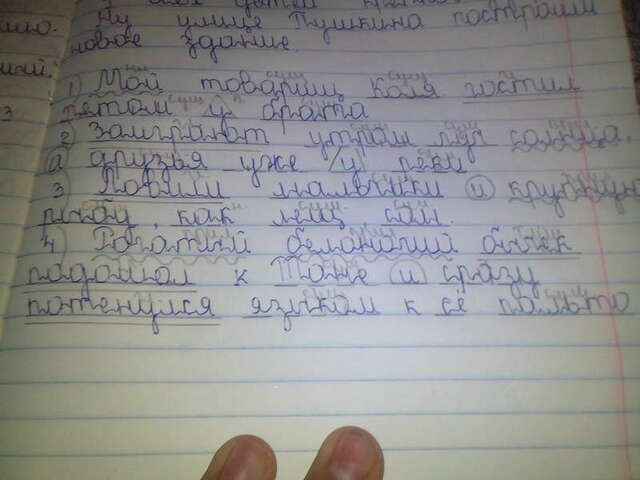 На улице Пушкина построили
новое здание.
1) Мой товарищ Коля гостил
летом у брата
2) Заиграют утром луч солнца.
а друзья уже у реки
3) Ловили мальчики и крупную
рыбу, как лещ, сом.
4) Рогатый белоногий бычек
подошол к Тане и сразу
потенулся языком к её пальто